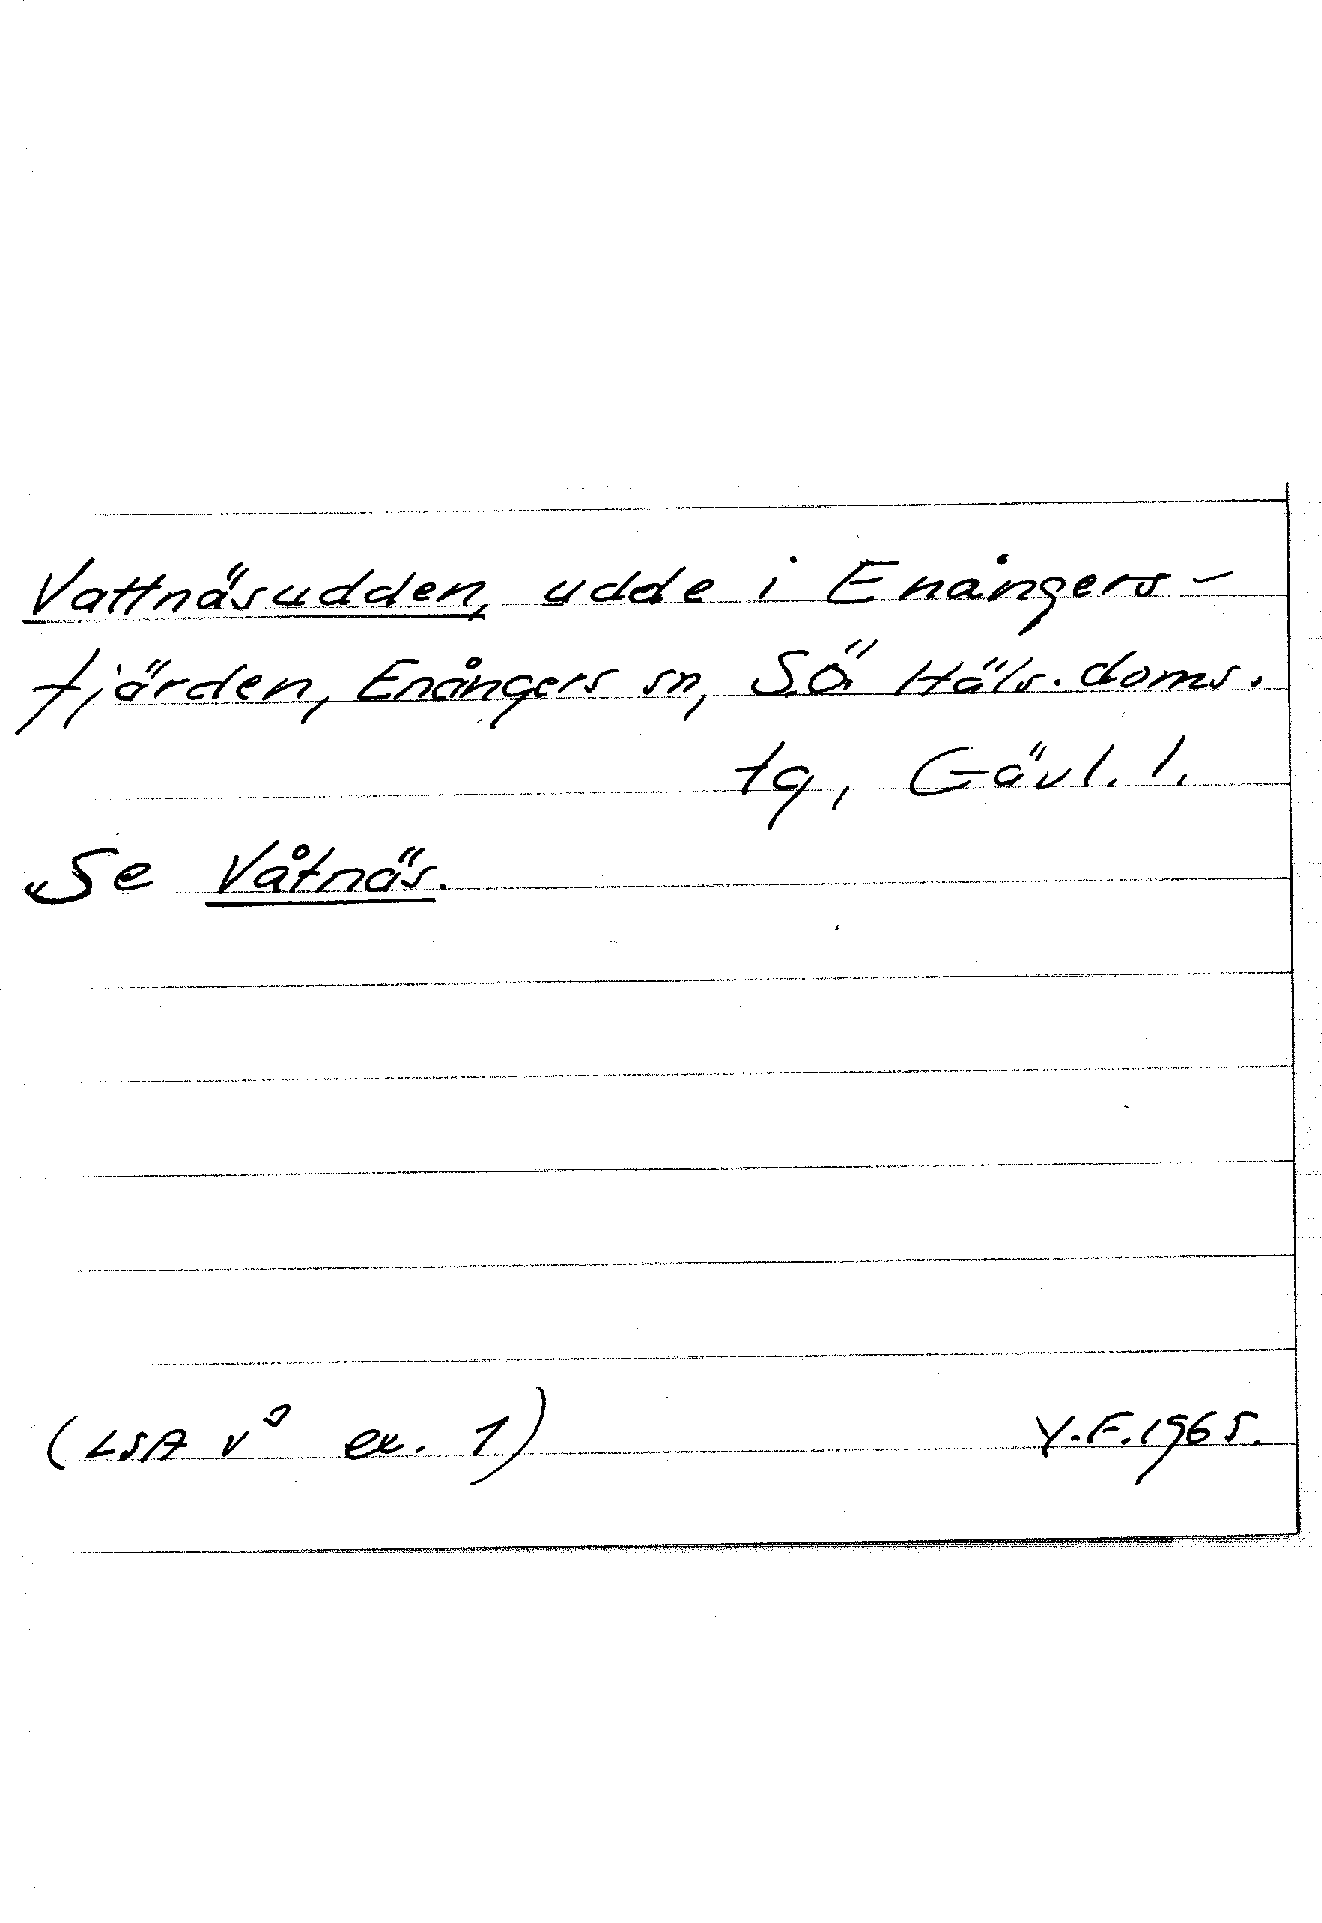 Vattnäsudden, udde i Enångers-
fjärden, Enångers sn, Sö Häls. doms.
tg, Gävl. l.
Se Våtnäs.
(LSA V⁹ ex. 1) Y.F. 1965.